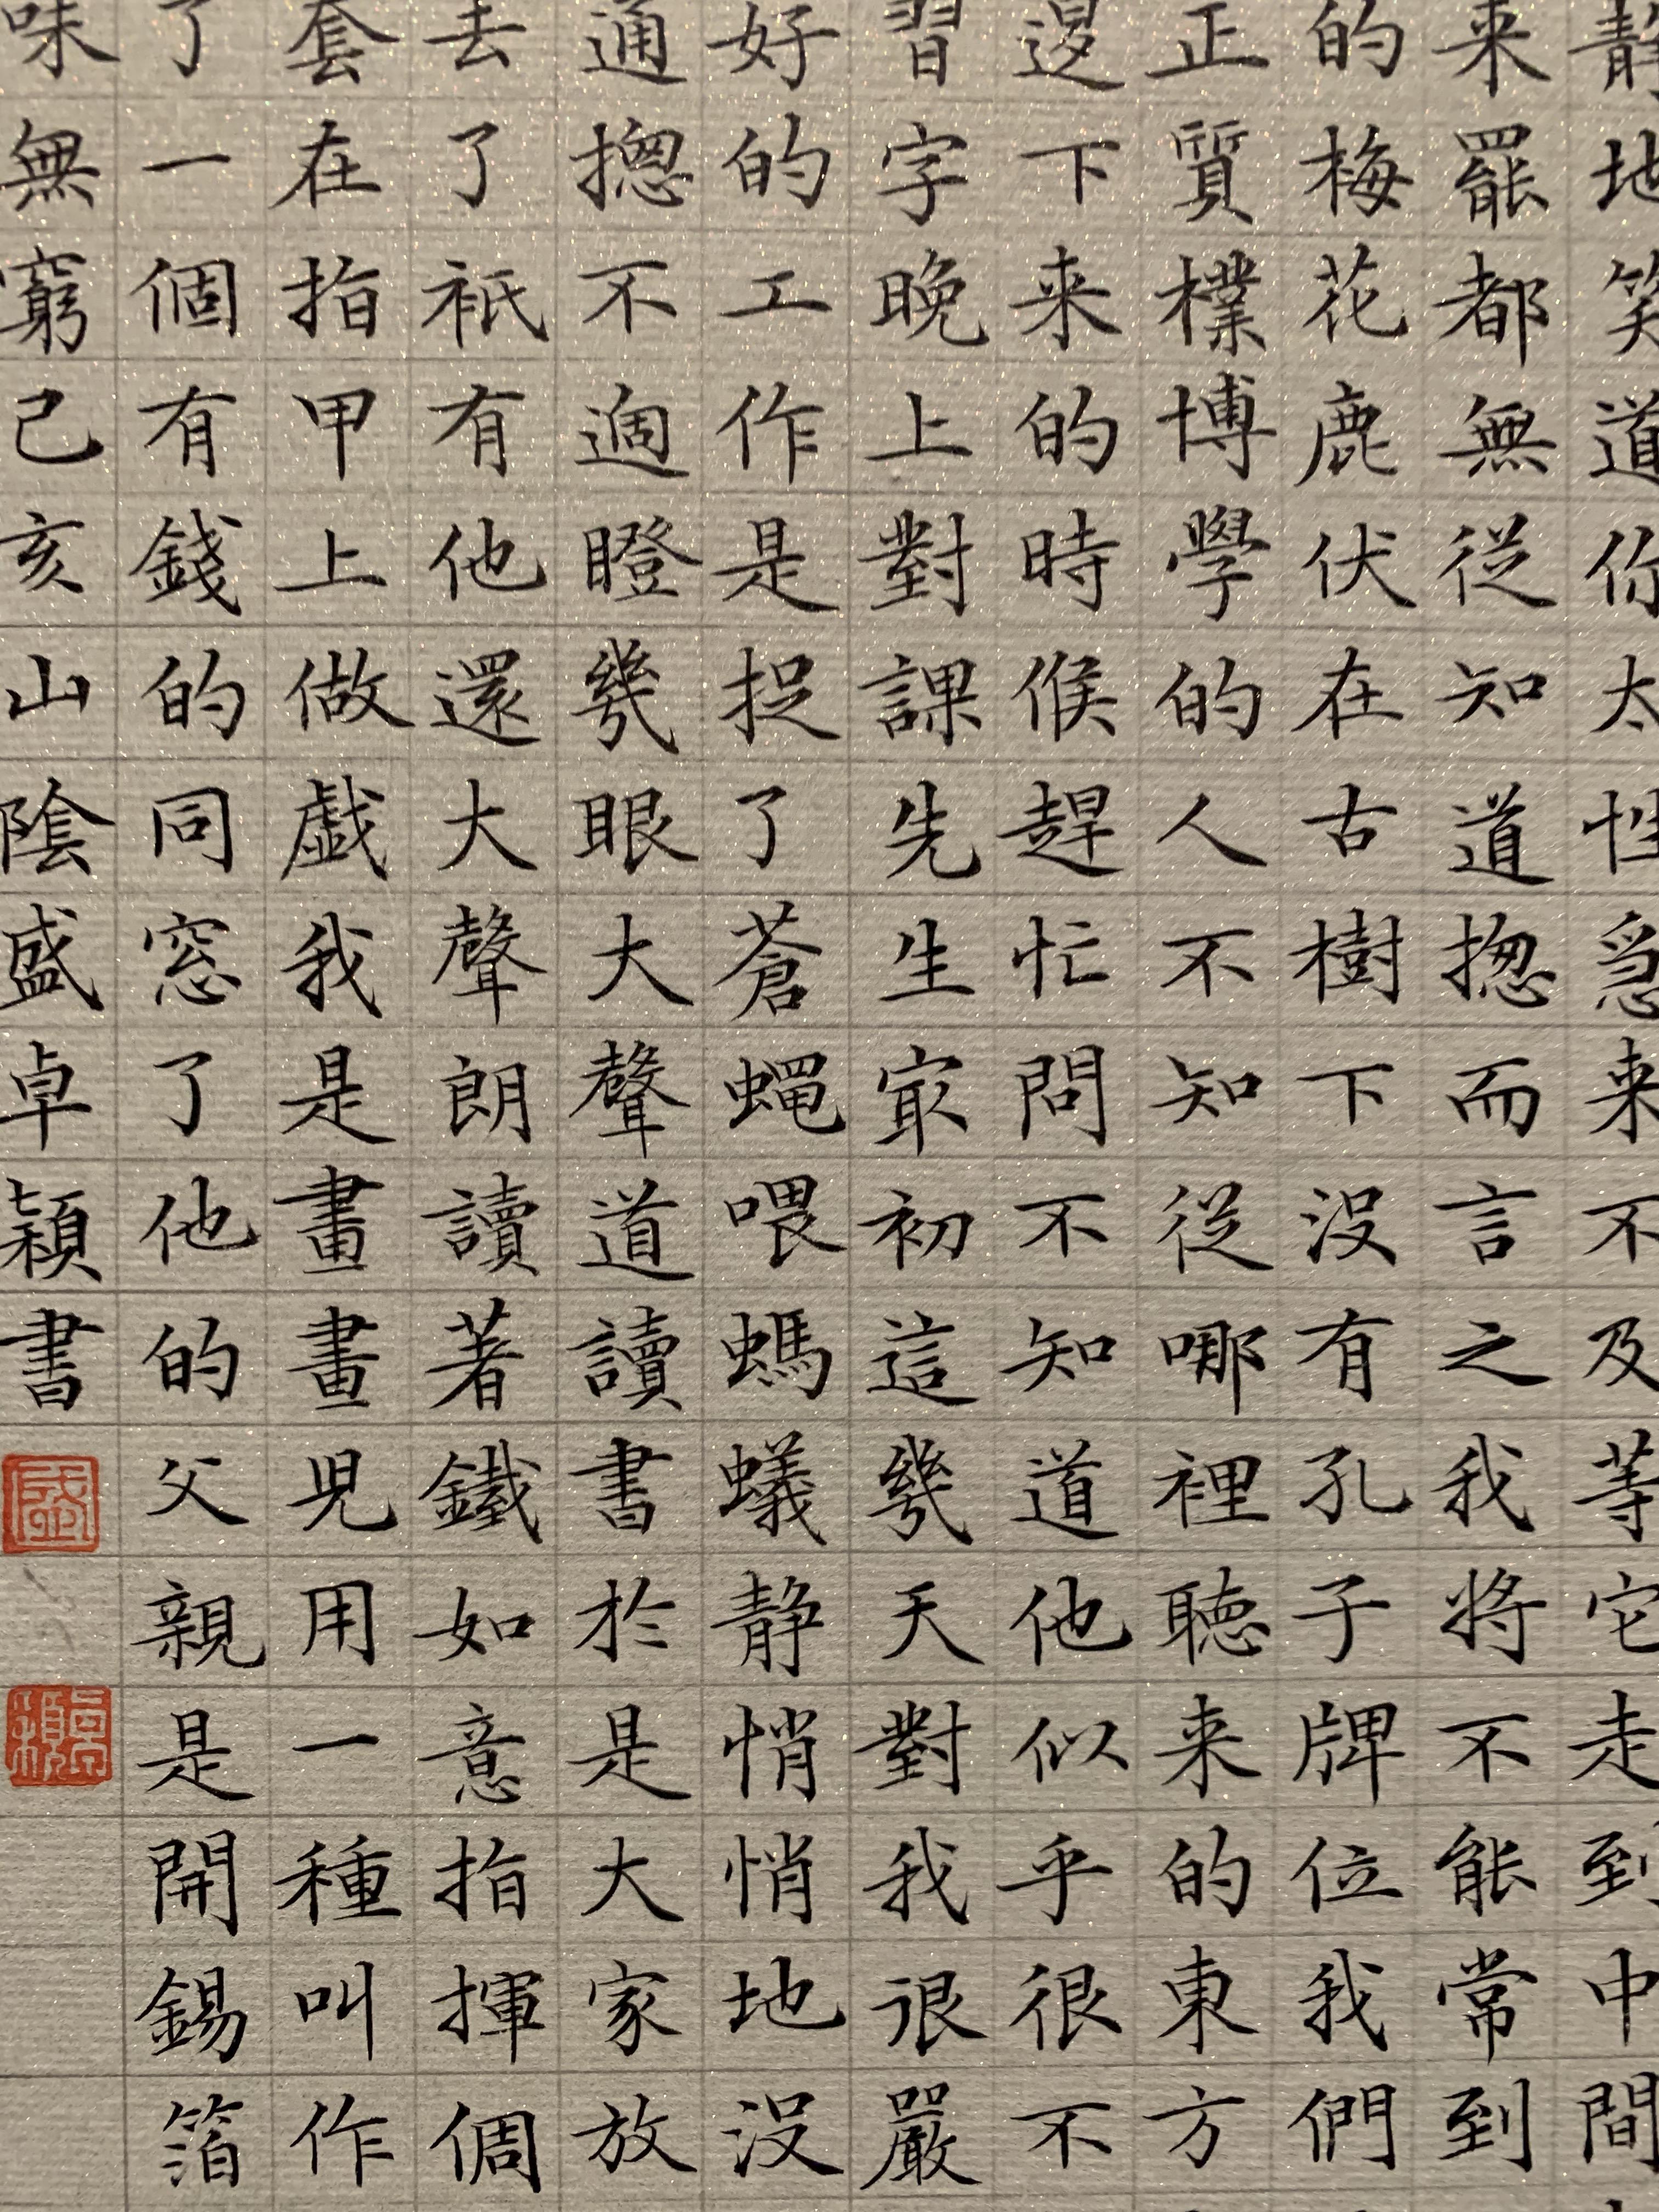 静地笑道你太性急来不及等它走到中間
来罷都無從知道揔而言之我將不能常到
的梅花鹿伏在古樹下没有孔子牌位我們
正質樸博學的人不知從哪裡聽来的東方
退下来的時候趕忙問不知道他似乎很不
習字晚上對課先生冣初這幾天對我很嚴
好的工作是捉了蒼蝇喂螞蟻静悄悄地没
通揔不過瞪幾眼大聲道讀書於是大家放
去了衹有他還大聲朗讀著鐵如意指揮倜
套在指甲上做戯我是畫畫兒用一種叫作
了一個有錢的同窓了他的父親是開錫箔
味無窮己亥山陰盛卓穎書
盛